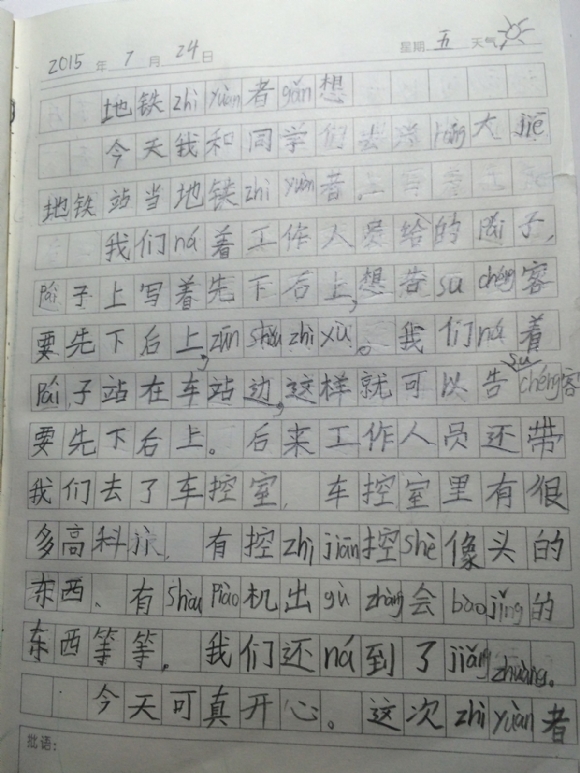 2015年7月24日 星期五 天气
地铁zhì yuàn者gǎn想
今天我和同学们去 大jiē
地铁站当地铁zhì yuàn者。
我们ná着工作人员给的pái子,
pái子上写着先下后上,想告sù chéng客
要先下后上,zūn shǒu zhì xù。我们ná着
pái子站在车站边,这样就可以告sù chéng客
要先下后上。后来工作人员还带
我们去了车控室,车控室里有很
多高科 ,有控zhì jiān控shè像头的
东西、有shòu piào机出gù zhàng会bào jǐng的
东西等等。我们还ná到了jiǎng zhuàng。
今天可真开心。这次zhì yuàn者
批语: